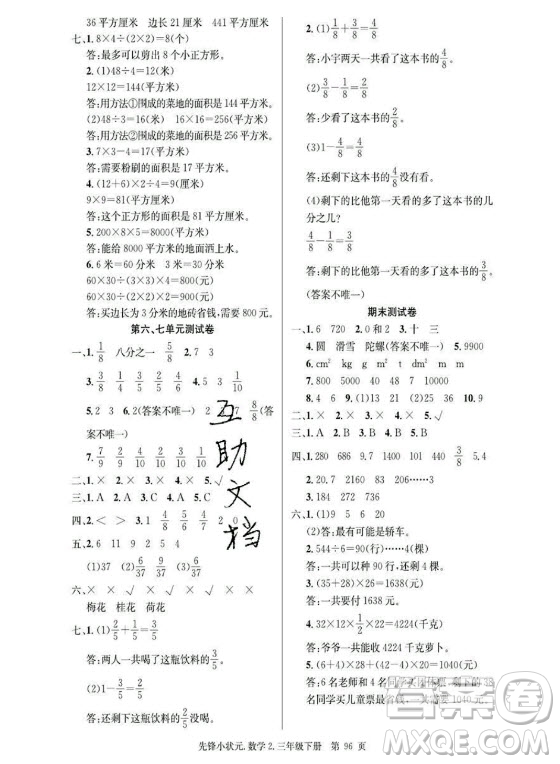 36平方厘米 边长21厘米 441平方厘米
七、1.8×4÷(2×2)=8(个)
答:最多可以剪出8个小正方形。
2.(1)48÷4=12(米)
12×12=144(平方米)
答:用方法①围成的菜地的面积是144平方米。
(2)48÷3=16(米) 16×16=256(平方米)
答:用方法②围成的菜地的面积是256平方米。
3.7×3-4=17(平方米)
答:需要粉刷的面积是17平方米。
4.(12+6)×2÷4=9(厘米)
9×9=81(平方厘米)
答:这个正方形的面积是81平方厘米。
5.200×8×5=8000(平方米)
答:能给8000平方米的地面洒上水。
6.6米=60分米 3米=30分米
60×30÷(3×3)×4=800(元)
60×30÷(2×3)×3=900(元)
答:买边长为3分米的地砖省钱,需要800元。
第六、七单元测试卷
一、1.1/8 八分之一 5/8 2.7 3
3.3/8 1/4 3/5 2/5 5/10 3/4
5.2 3 6.2(答案不唯一) 2 7 8/8(答
案不唯一)
7.7/10
二、1.× 2.× 3.× 4.× 5.√
三、1.A 2.B 3.A 4.B 5.C
四、2.< > 4.1 4/5 5/8 4/6 2 0
五、2.6 11 9 2 5 4
(1)37 (2)6/37
六、× × √ × × √
梅花 桂花 荷花
七、1.(1)2/5+1/5=3/5
答:两人一共喝了这瓶饮料的3/5。
(2)1-3/5=2/5
答:还剩下这瓶饮料的2/5。
2.(1)1/8+3/8=4/8
答:小宇两天一共看了这本书的4/8。
(2)3/8-1/8=2/8
答:少看了这本书的2/8。
(3)1-4/8=4/8
答:还剩下这本书的4/8没有看。
(4)剩下的比他第一天看的多了这本书的几
分之几?
4/8-1/8=3/8
答:剩下的比他第一天看的多了这本书的3/8。
(答案不唯一)
期末测试卷
一、1.6 720 2.0和2 3.十 三
4.圆 滑雪 陀螺(答案不唯一) 5.9900
6.cm² kg m² t dm² m
8.4 9.(1)12 (2)15 (3)235 10.9
二、1.× 2.× 3.× 4.× 5.√
三、1.A 2.B 3.B 4.A 5.C
四、1.280 686 9.1 400 440 3/8 5.4
2.20.7 2160 83 206……2
3.1184 272 736
六、1.(1)50 36 30
(2)答:最可能是轿车。
2.544÷6=90(行)……4(棵)
答:一共可以种90行,还剩4棵。
3.(35+28)×26=1638(元)
答:一共要付1638元。
4.32×12×1/2×22=4224(千克)
答:爷爷一共能收4224千克萝卜。
5.(6+4)×28+(42-4)×20=1040(元)
先锋小状元.数学2.三年级下册 第96页
互
助
文
档